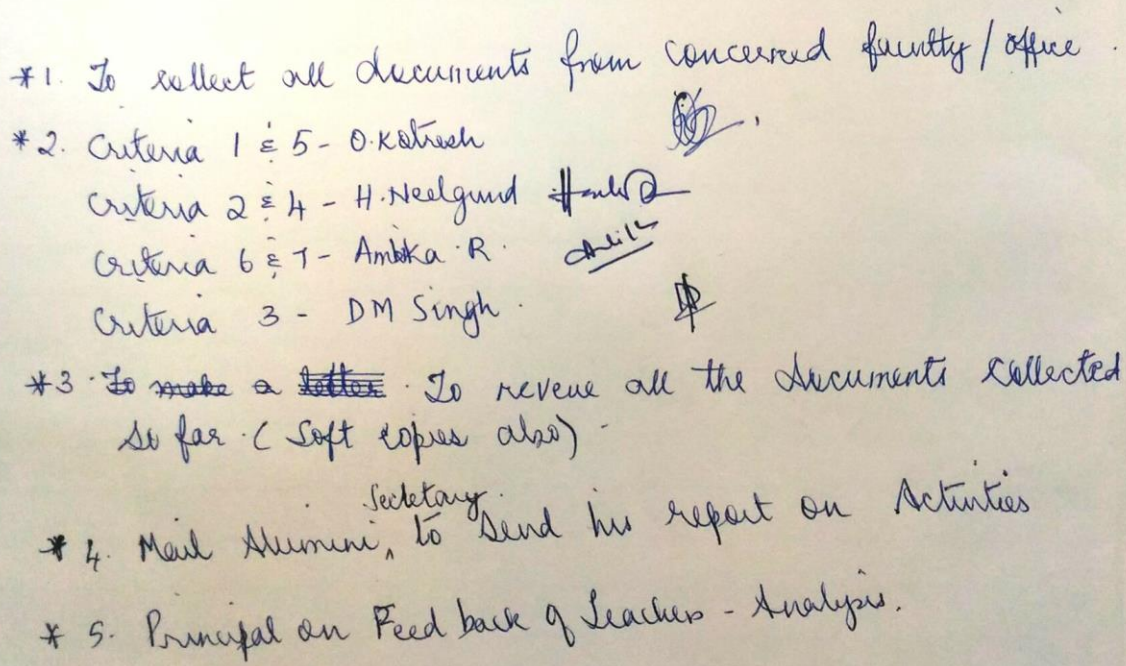 *1. To collect all documents from concerned faculty / office.
*2. Criteria 1 & 5 - O.Katresh
Criteria 2 & 4 - H.Neelgund
Criteria 6 & 7 - Ambika R.
Criteria 3 - DM Singh.
*3. To make a letter. To reveue all the documents collected
so far. (Soft copies also)
Secretary
*4. Mail Alumini, to send his report on Activities
*5. Principal on Feed back of Teachers - Analysis.